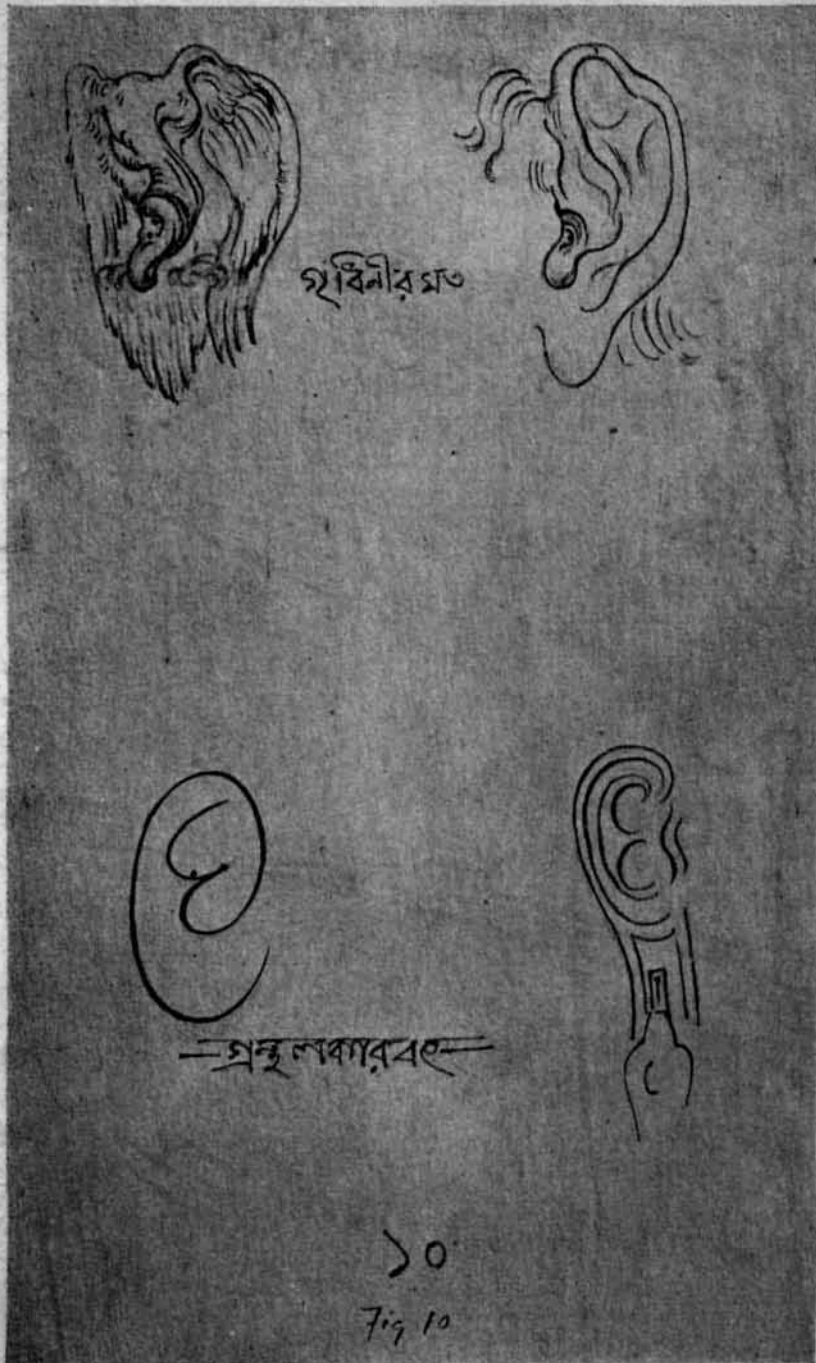 গৃধিনীর মত
গ্রন্থ লকারবৎ
১০
Fig 10